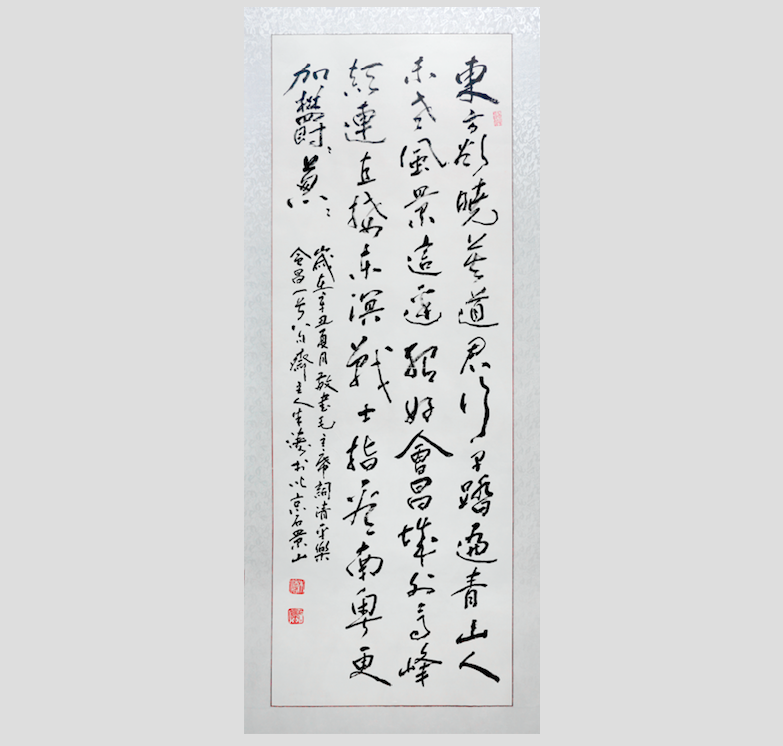 東方欲曉莫道君行早踏遍青山人
未老風景這邊獨好會昌城外高峰
顛連直接東溟戰士指看南粵更
加鬱〻蔥〻
歲在辛丑夏月敬書毛主席詞清平樂
會昌一首 齋主人 於北京石景山